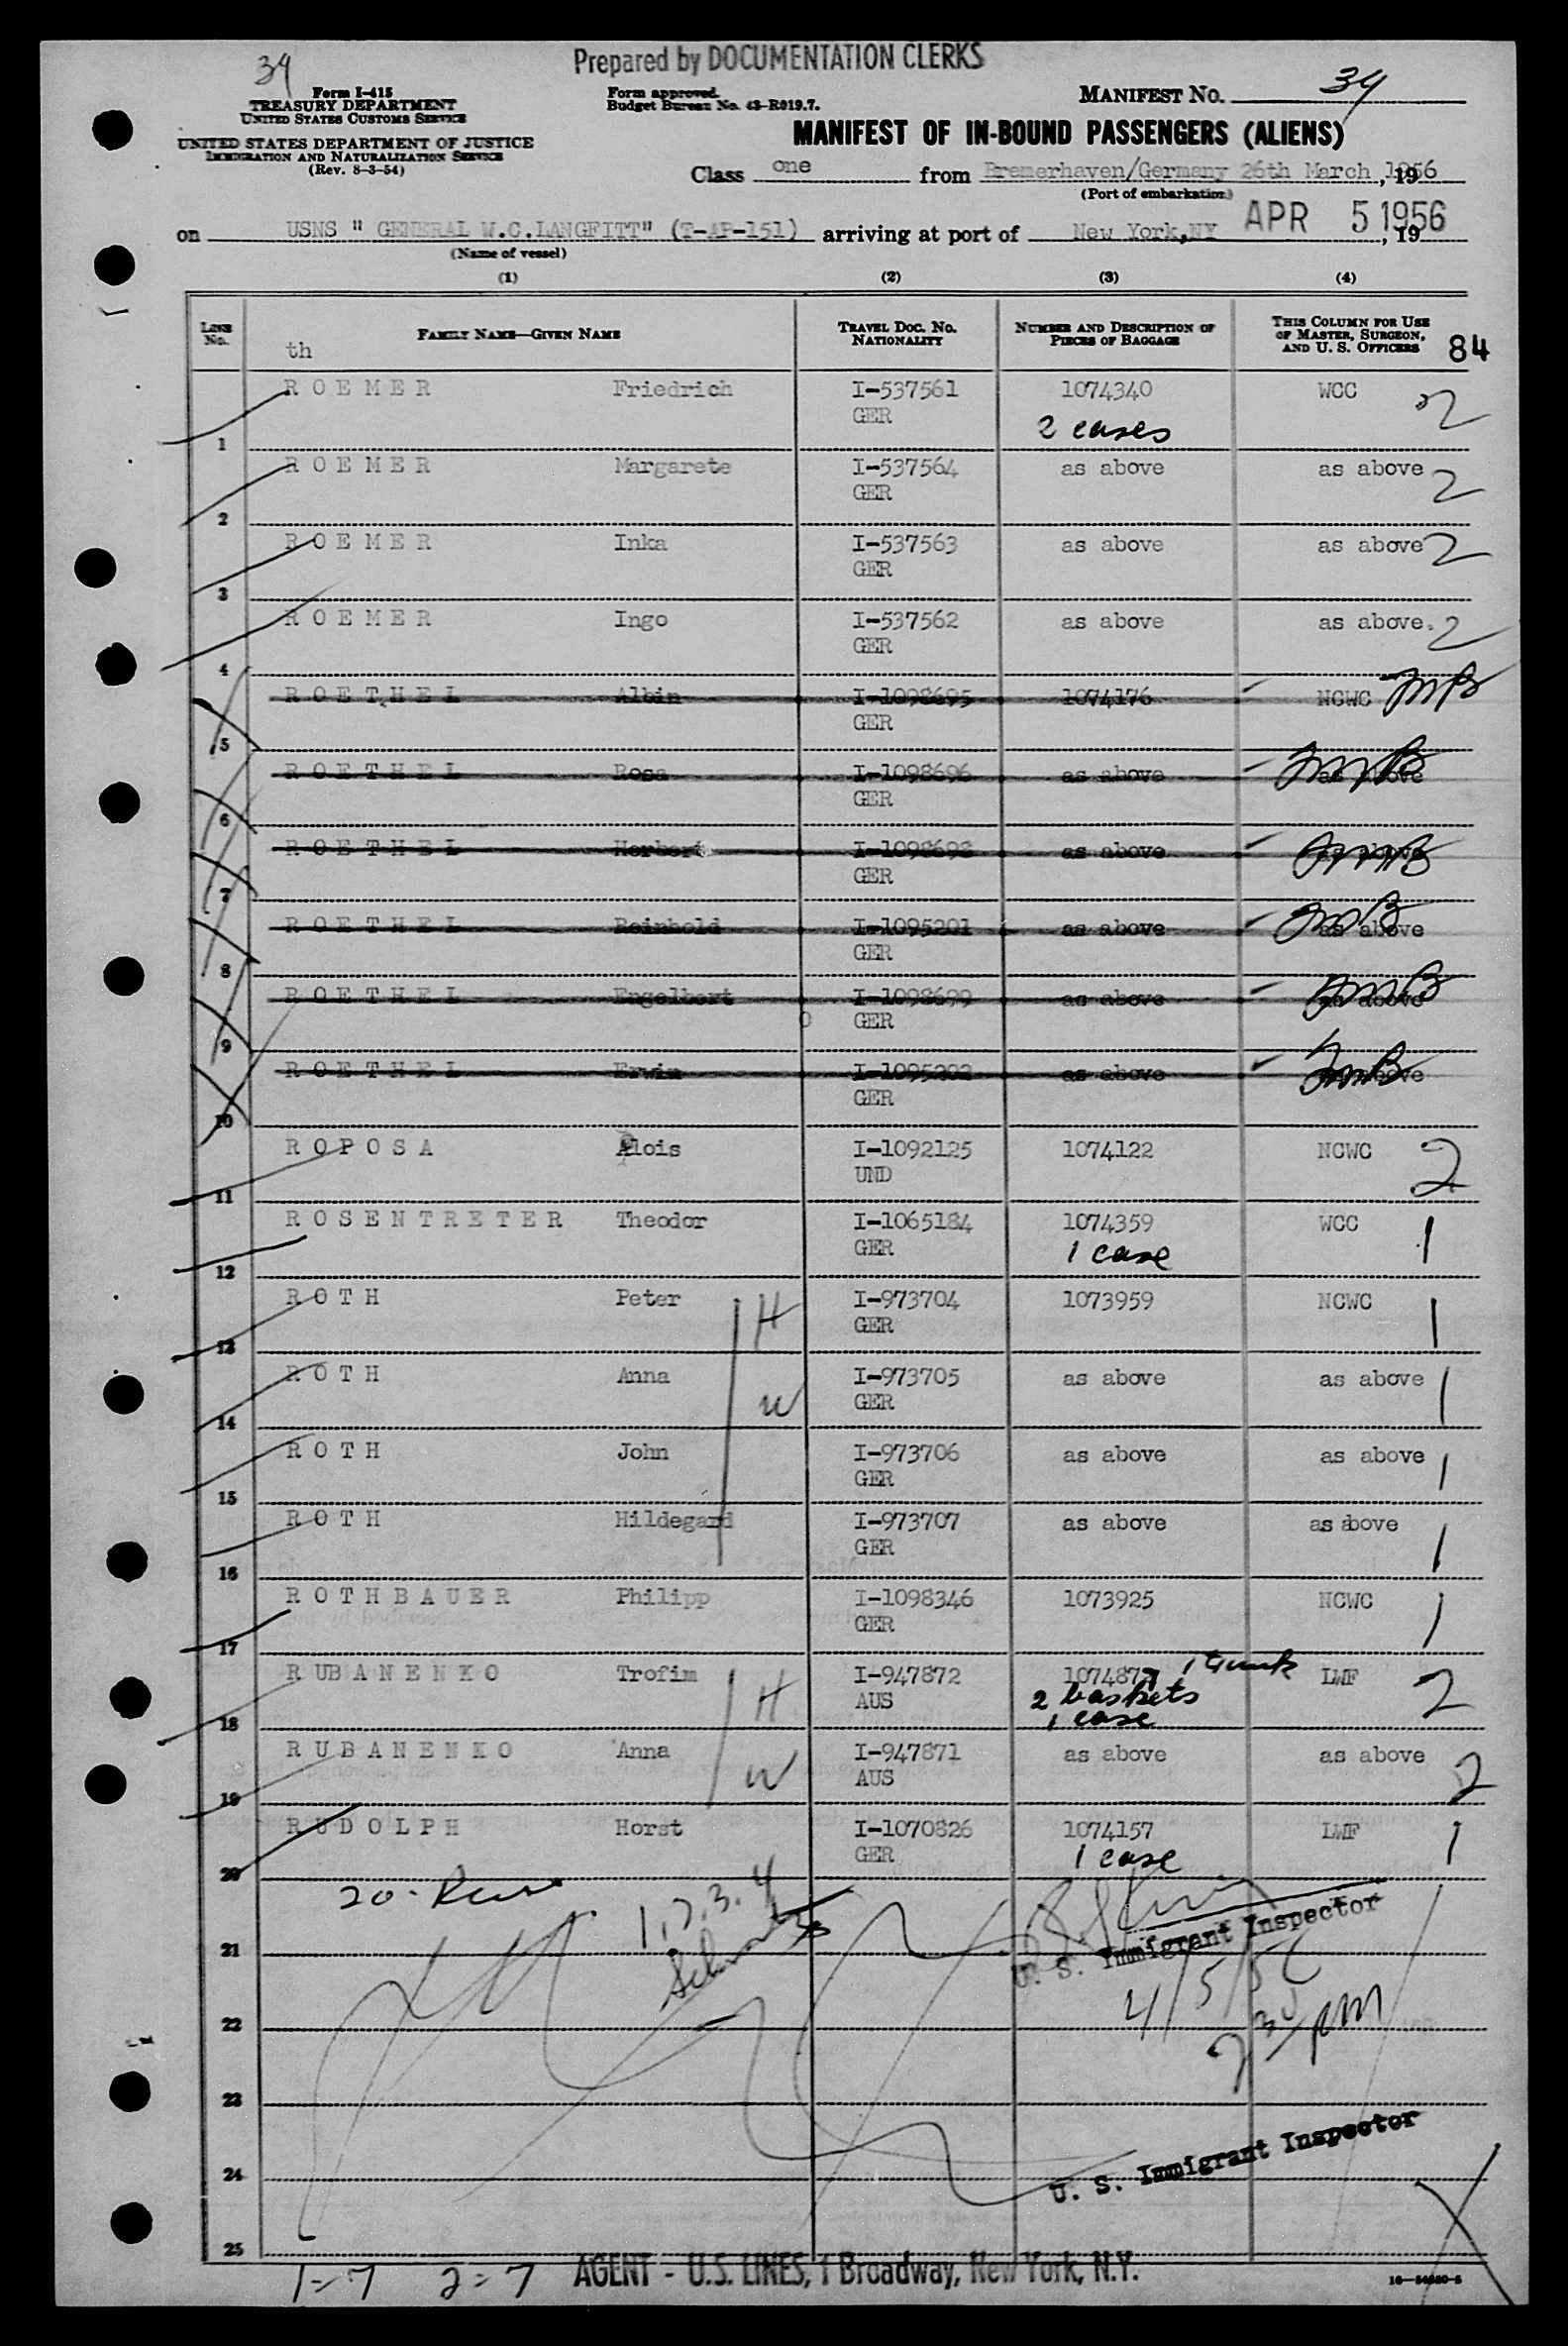 Prepared by DOCUMENTATION CLERKS
34
Form I-415
TREASURY DEPARTMENT
UNITED STATES CUSTOMS SERVICE
UNITED STATES DEPARTMENT OF JUSTICE
IMMIGRATION AND NATURALIZATION SERVICE
(Rev. 8-3-54)
Form approved.
Budget Bureau No. 43-R019.7.
MANIFEST NO. 34
MANIFEST OF IN-BOUND PASSENGERS (ALIENS)
Class one from Bremerhaven/Germany 26th March, 1956
(Port of embarkation)
on USNS " GENERAL W.C.LANGFITT" (T-AP-151) arriving at port of New York,NY APR 5 1956, 19
(Name of vessel)
(1) (2) (3) (4)
LINE No. FAMILY NAME—GIVEN NAME TRAVEL DOC. NO. NATIONALITY NUMBER AND DESCRIPTION OF PIECES OF BAGGAGE THIS COLUMN FOR USE OF MASTER, SURGEON, AND U. S. OFFICERS 84
th
1 R O E M E R Friedrich I-537561 GER 1074340 2 cases WCC 2
2 R O E M E R Margarete I-537564 GER as above as above 2
3 R O E M E R Inka I-537563 GER as above as above 2
4 R O E M E R Ingo I-537562 GER as above as above. 2
5 R O E T H E L Albin I-1098695 GER 1074176 NCWC
6 R O E T H E L Rosa I-1098696 GER as above as above
7 R O E T H E L Herbert I-1098698 GER as above as above
8 R O E T H E L Reinhold I-1095201 GER as above as above
9 R O E T H E L Engelbert I-1098699 GER as above as above
10 R O E T H E L Erwin I-1095202 GER as above as above
11 R O P O S A Alois I-1092125 UND 1074122 NCWC 2
12 R O S E N T R E T E R Theodor I-1065184 GER 1074359 1 case WCC 1
13 R O T H Peter H I-973704 GER 1073959 NCWC 1
14 R O T H Anna W I-973705 GER as above as above 1
15 R O T H John I-973706 GER as above as above 1
16 R O T H Hildegard I-973707 GER as above as above 1
17 R O T H B A U E R Philipp I-1098346 GER 1073925 NCWC 1
18 R UB A N E N K O Trofim H I-947872 AUS 1 trunk 2 baskets 1 case LWF 2
19 R U B A N E N K O Anna W I-947871 AUS as above as above 2
20 R U D O L P H Horst I-1070826 GER 1074157 1 case LWF 1
1, 2, 3, 4
U. S. Immigrant Inspector
21
4/5/56
22
2 30 PM
23
U. S. Immigrant Inspector
24
25
1=7 2=7 AGENT - U.S. LINES, 1 Broadway, New York, N.Y.